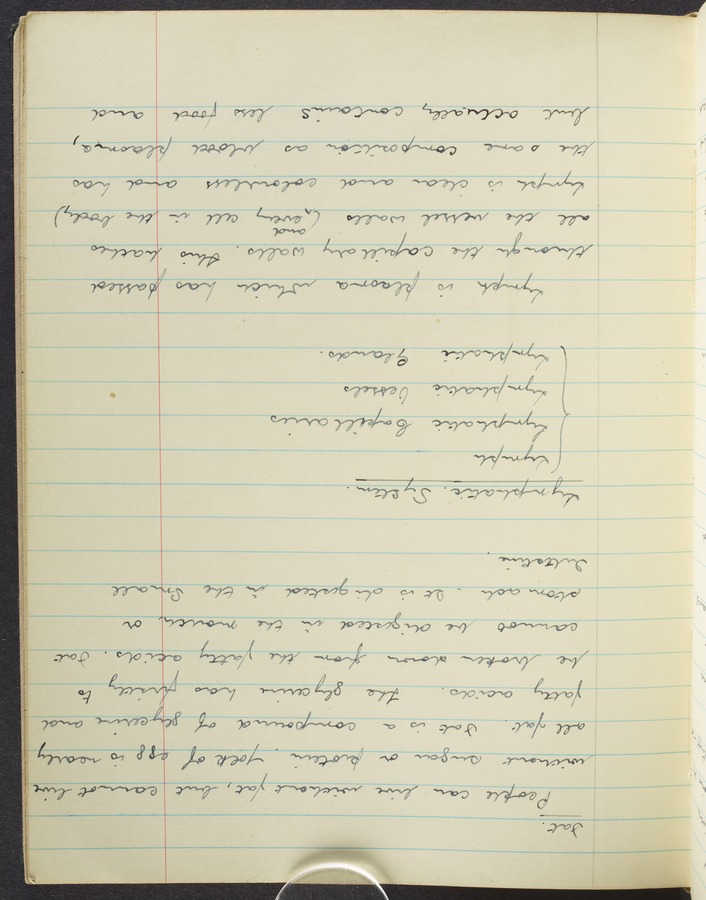 Fat.
People can live without fat, but cannot live
without sugar or protein. Yolk of egg is nearly
all fat. Fat is a compound of glycerine and
fatty acids. The glycerine has firstly to
be broken down from the fatty acids. Fat
cannot be digested in the mouth, or
stomach. It is digested in the small
intestine.
Lymphatic System.
Lymph
Lymphatic Capillaries
Lymphatic Vessels
Lymphatic Glands.
Lymph is plasma which has passed
through the capillary walls. This bathes
and
all the vessel walls (every cell in the body,)
Lymph is clear and colourless and has
the same composition as blood plasma,
but actually contains less food and